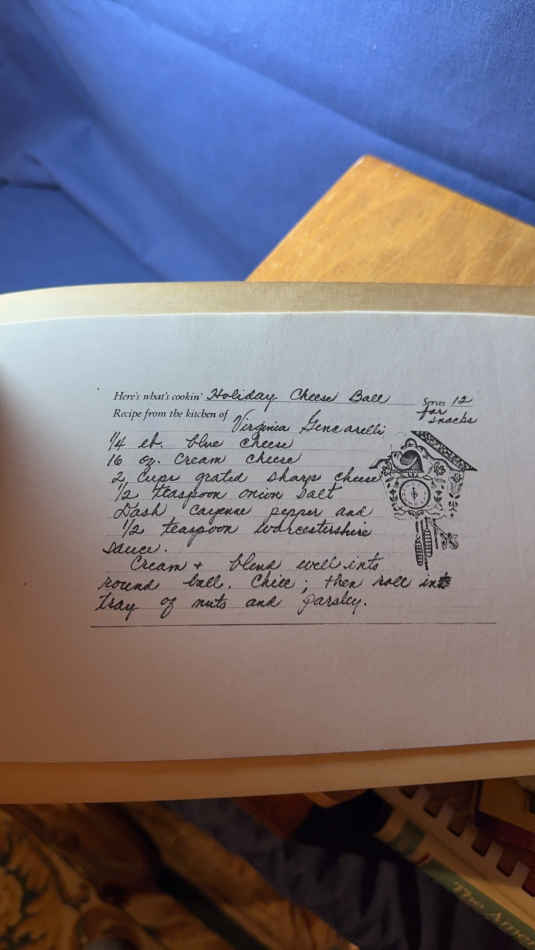 Here's what's cookin' Holiday Cheese Ball Serves 12
Recipe from the kitchen of Virginia Gencarelli for snacks
1/4 lb. blue cheese
16 oz. cream cheese
2 cups grated sharp cheese
1/2 teaspoon onion salt
Dash cayenne pepper and
1/2 teaspoon worcestershire
sauce.
Cream + blend well into
round ball. Chill; then roll into
tray of nuts and parsley.
The Amer